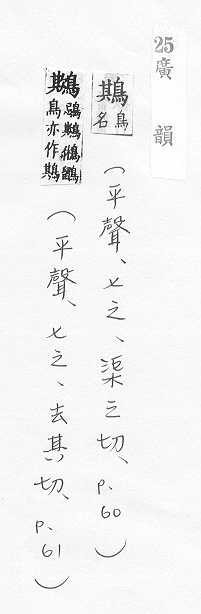 25 廣韻
鶀 鳥名 (平聲、七之、渠之切、p.60)
鶀 鵋鶀鵂鶹鳥亦作 (平聲、七之、去其切、p.61)